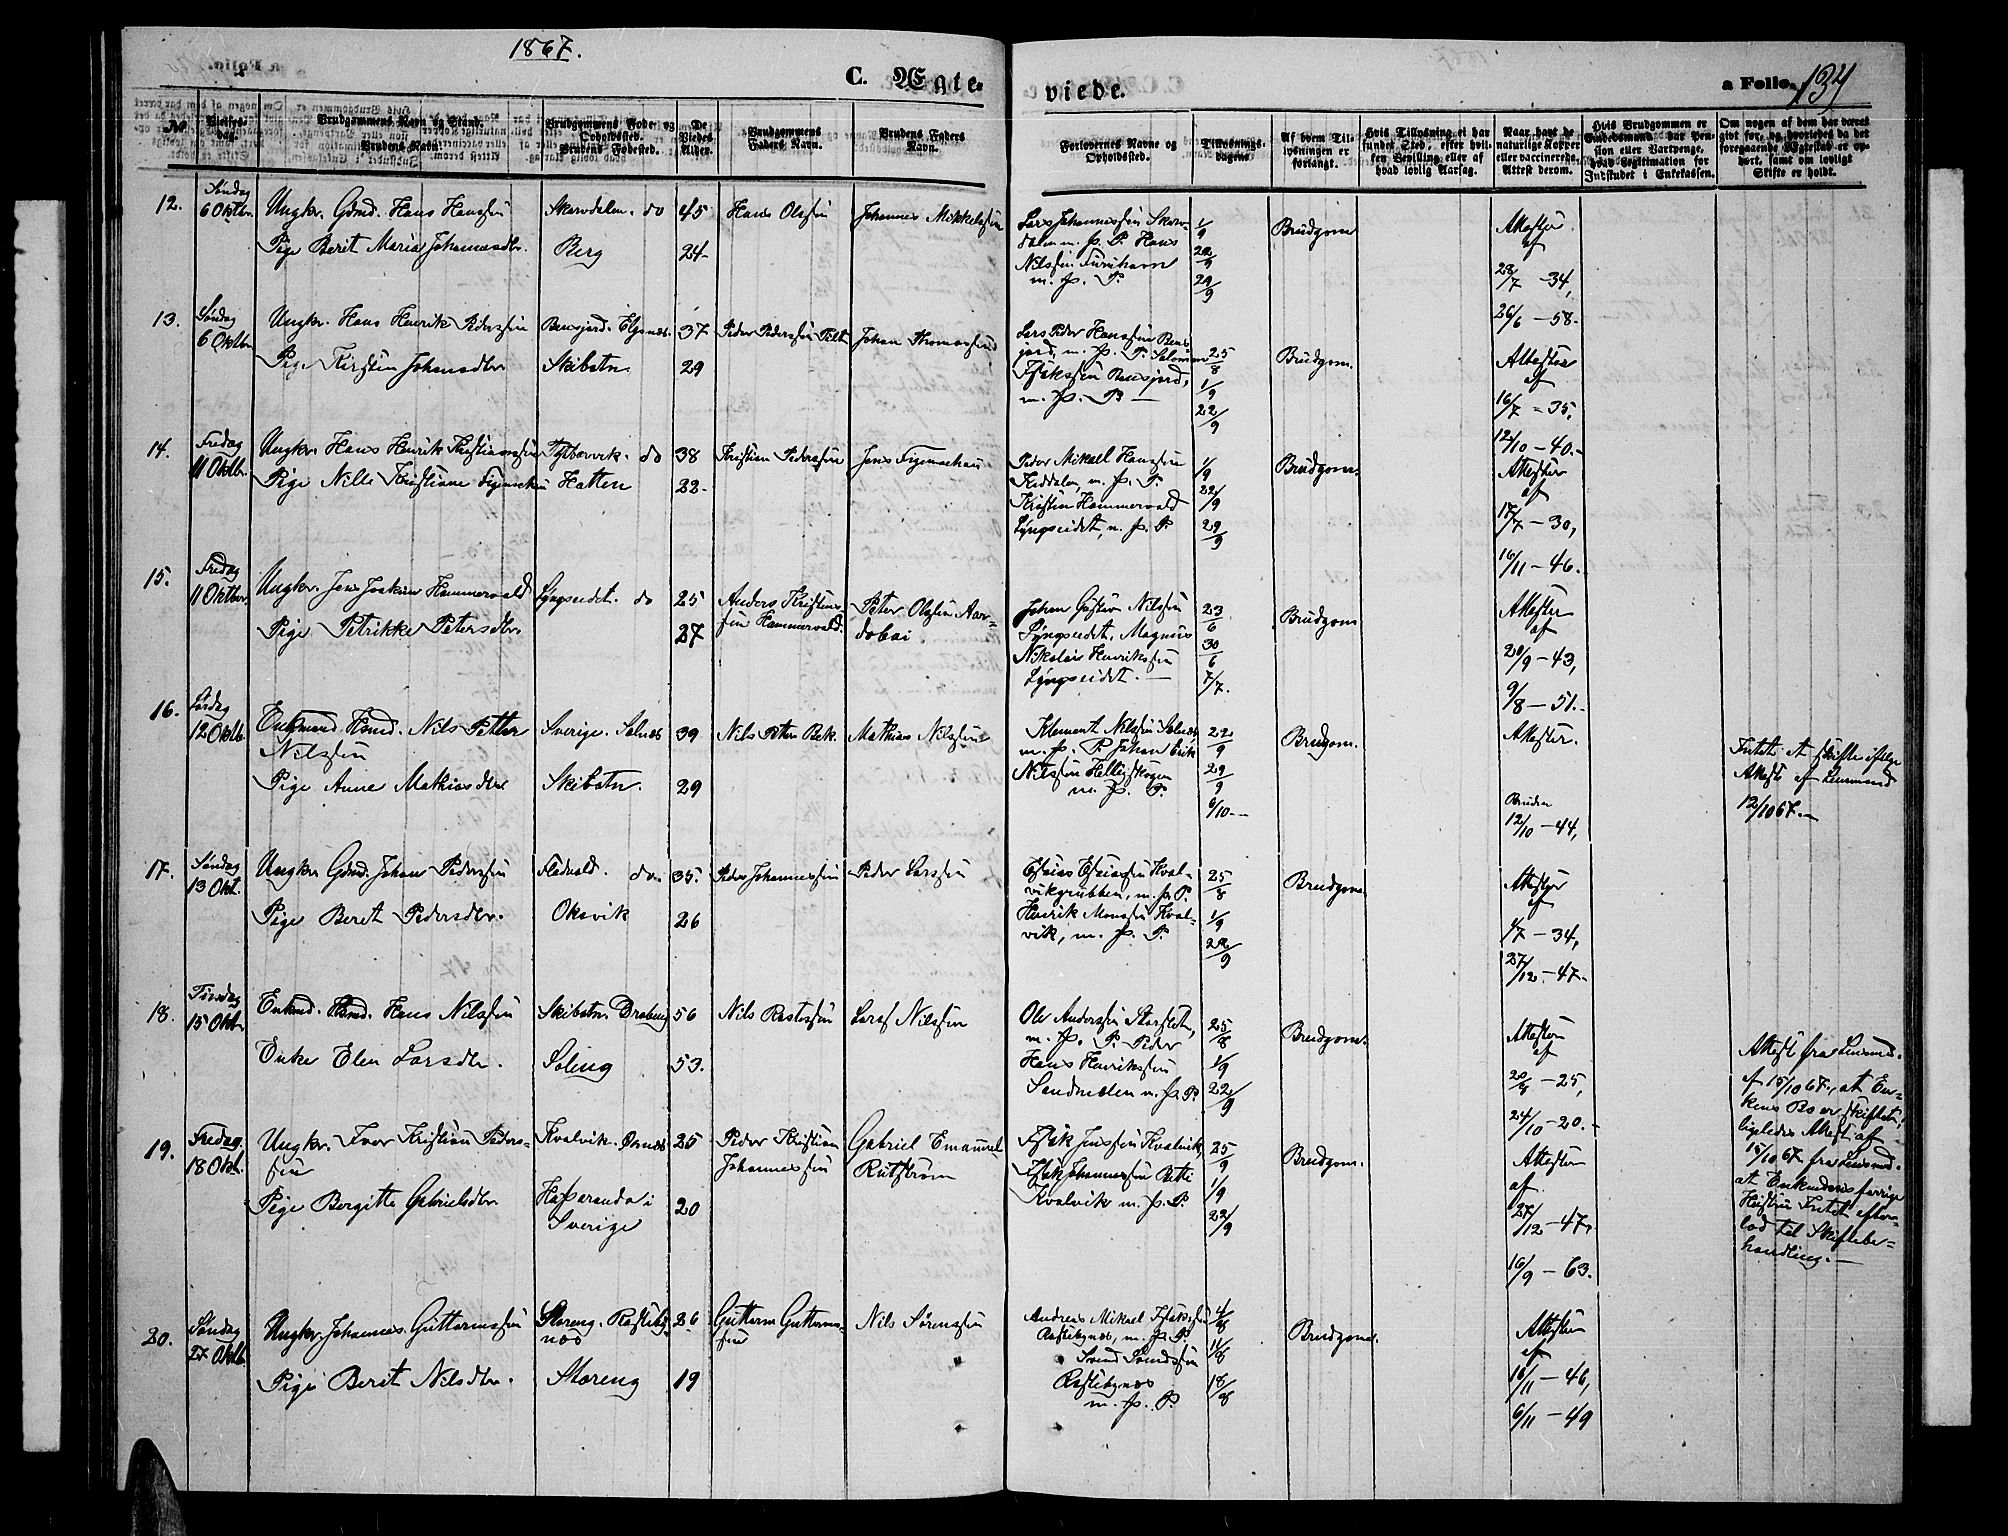 1867.
C. Ægte-
viede.
a Folio 134
No.
Vielses-
dag.
Brudgommens Navn og Stand.
Brudens Navn.
Brudgommens Føde- og
Opholdssted.
Brudens Fødested.
De
Viedes
Alder.
Brudgommens
Faders Navn.
Brudens Faders
Navn.
Forlovernes Navne og
Opholdssted.
Tillysnings-
dagene.
Af hvem Til-
lysningen er
forlangt.
Hvis Tillysning ei har
fundet Sted, efter hvil-
ken Bevilling eller af
hvad lovlig Aarsag.
Naar havt de
naturlige Kopper
eller vaccinerede.
Attest derom.
Hvis Brudgommen er
Indstudet i Enkekassen.
Om nogen af dem har været
givt før, og hvorledes da det
foregaaende Ægteskab er op-
hørt, samt om lovligt
Skifte er holdt.
12.
Søndag
6 Oktbr.
Ungkr. Gdmd. Hans Hanssen
Pige Berit Maria Johannesdtr.
Skarvdalen. do
Berg
45
24
Hans Olsen
Johannes Mikkelsen
Lars Johannessen Skarv-
dalen m. p. P. Hans
Nilssen Furuhavn
m. p. P.
1/9
22/9
29/9
Brudgom
Attester
af
28/7 - 34,
26/6 - 58.
13.
Søndag
6 Oktbr.
Ungkr. Hans Henrik Pederssen
Pige Kirsten Johansdtr
Bensjord. Elgsnæs
Skibotn
37
29
Peder Pederssen
Johan Thomassen
Lars Peder Hanssen Bens-
jord, m. p. P. Salomon
Isakssen Bensjord,
m. p. P.
25/8
1/9
22/9
Brudgom.
Attester
af
16/7 - 35,
12/10 - 40.
14.
Fredag
11 Oktbr.
Ungkr. Hans Henrik Kristianssen
Pige Nille Kristiane Figenschau
do
Hatten
38
22
Kristian Pederssen
Jens Figenschau
Peder Mikael Hanssen
m. p. P.
Kristen Hammervold
Lyngseidet, m. p. P.
1/9
22/9
29/9
Brudgom.
Attester
af
17/7 - 30,
16/11 - 46.
15.
Fredag
11 Oktbr.
Ungkr. Jens Joakim Hammervold
Pige Petrikke Petersdtr.
Lyngseidet. do
25
27
Anders Kristens-
sen Hammervold.
Peter Olssen Aar-
Johan Gustav Nilssen
Lyngseidet, Magnus
Nikolai Henrikssen
Lyngseidet.
23/6
30/6
7/7.
Brudgom
Attester
af
20/9 - 43,
9/8 - 51.
16.
Lørdag
12 Oktb.
Enkemand Hsmd. Nils Petter
Nilssen
Pige Anne Mathiasdtr
Sverige. Salnæs
Skibotn.
39
29
Nils Peter Bek.
Mathias Nilssen
Klement Nilssen Salnæs,
m. p. P. Johan Erik
Nilssen Helligskogen
m. p. P.
22/9
29/9
6/10.
Brudgom.
Attester.
Bruden
12/10 - 44,
Intet at skifte ifølge
Attest af Lensmand
12/10 67.
17.
Søndag
13 Okt.
Ungkr. Gdmd. Johan Pederssen
Pige Beret Pedersdtr.
do.
Oksvik
35.
26
Peder Johannessen
Peder Larssen
Esaias Esaiassen Kval-
vikgrubben, m. p. P.
Henrik Monssen Kval-
vik, m. p. P.
25/8
1/9
22/9
Brudgom.
Attester
af
4/7 - 34,
27/12 - 47.
18.
Tirsdag
15 Okt.
Enkmd. Hsmd. Hans Nilssen
Enke Elen Larsdtr.
Skibotn.
56
53.
Nils Rastessen
Lars Nilssen
Ole Anderssen
m. p. P. Peder
Hans Henrikssen
m. p. P.
25/8
1/9
22/9
Brudgom.
Attester
af
- 25,
24/10 - 20.
Attest fra Lensmd.
af 15/10 67, at En-
kens Bo er skiftet;
ligeledes Attest af
15/10 67 fra Lensmd.
at Enkmdens forrige
Hustru Intet efter-
lod til Skiftebe-
handling.
19.
Fredag
18 Okt.
Ungkr. Iver Kristian Peders-
sen
Pige Bergitte Gabrielsdtr.
Kvalvik.
Haparanda i
Sverige
25
20
Peder Kristian
Johannessen
Gabriel Emanuel
Rutstrøm
Isak Jenssen Kvalvik,
Isak Johannessen
Kvalvik m. p. P.
25/9
1/9
22/9
Brudgom.
Attester
af
27/12 - 47,
16/9 - 63.
20.
Søndag
27 Oktb.
Ungkr. Johannes Guttormssen
Pige Berit Nilsdtr.
Storeng. Rasteby-
næs
Storeng
26
19
Guttorm Guttorms-
sen
Nils Sørenssen
Andreas Mikael Isakssen
Rastebynæs, m. p. P.
Svend Svendssen
Rastebynæs
m. p. P.
4/8
11/8
18/8
Brudgom.
Attester
af
16/11 - 46,
6/11 - 49